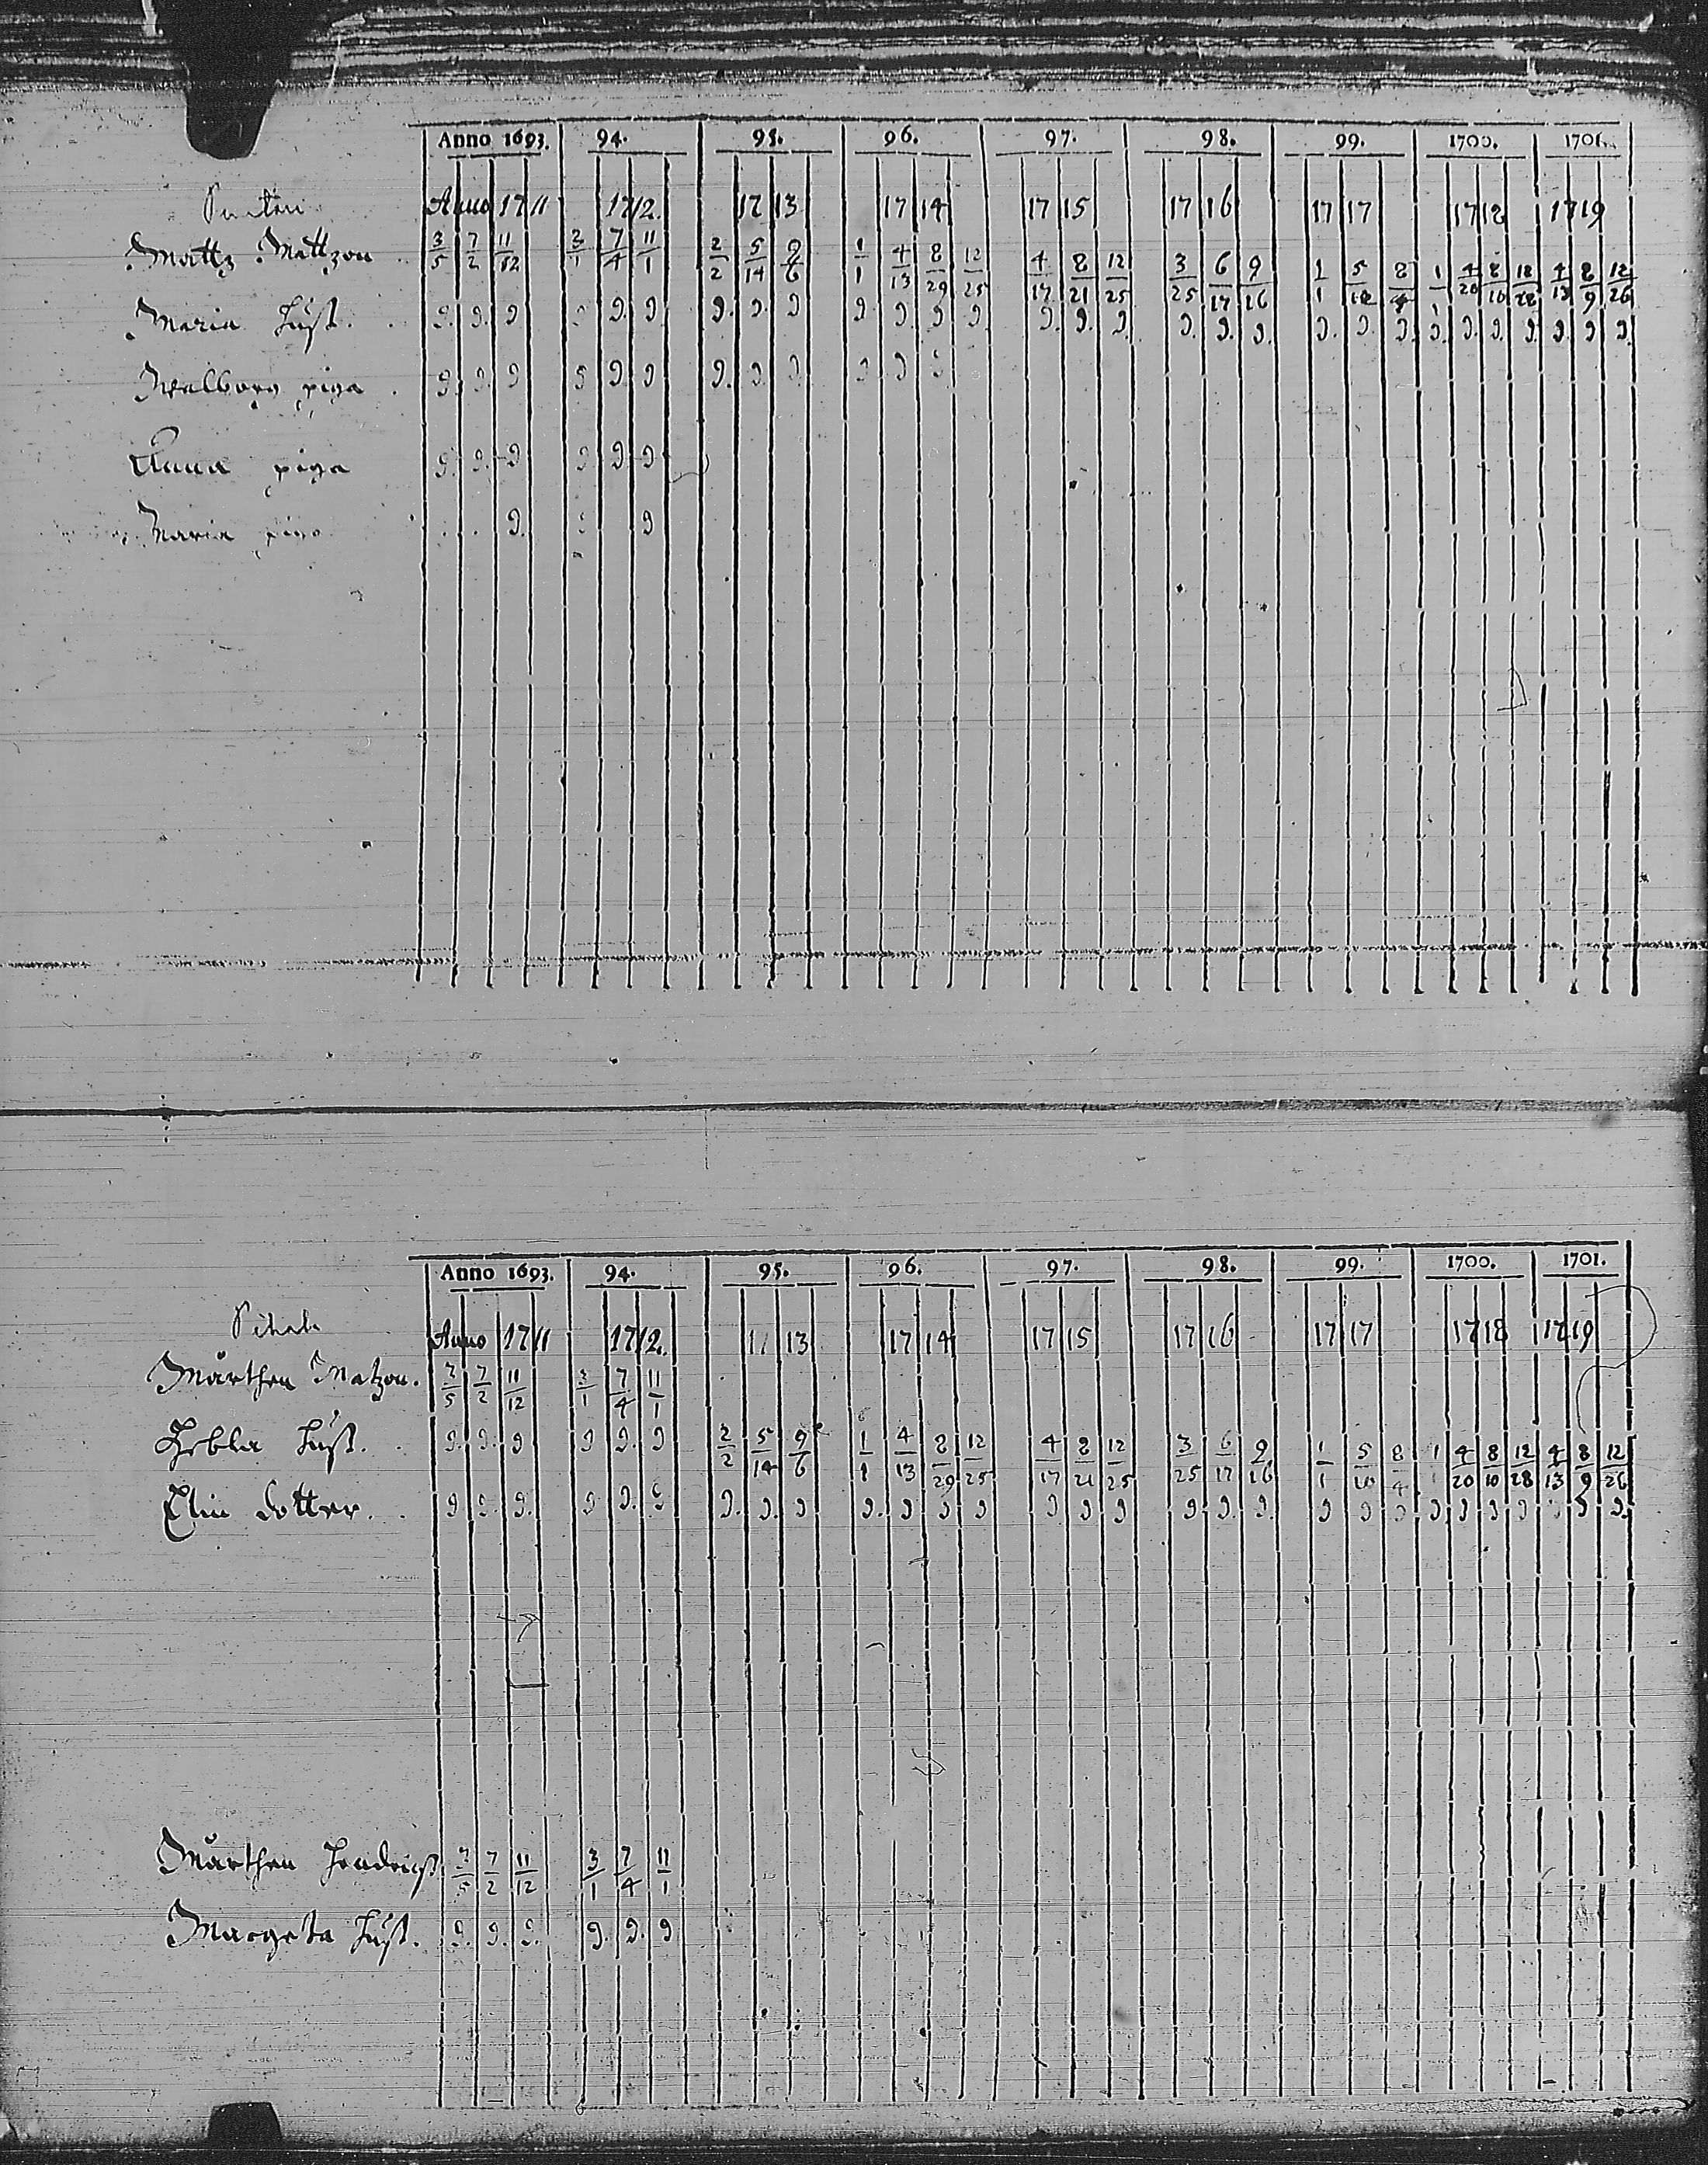 Anno 1693. 94. 95. 96. 97. 98. 99. 1700. 1701.
Anno 1711 1712. 1713 1714 1715 1716 1717 1718 1719
Mattz Mattzon 3/5 7/2 11/12 3/1 7/4 11/1 2/2 5/14 9/6 1/1 4/13 8/29 12/25 4/17 8/21 12/25 3/25 6/17 9/16 1/1 5/10 8/4 1/1 4/20 8/10 12/28 4/13 8/9 12/26
Maria hust. 9. 9. 9 9 9. 9. 9. 9. 9 9. 9. 9 9. 9. 9. 9. 9. 9. 9. 9. 9. 9. 9. 9. 9. 9. 9. 9 9.
Walborg piga 9. 9. 9 9 9. 9 9. 9. 9. 9. 9 9
Anna piga 9. 9. 9 9 9. 9
Maria piga 9. 9
Anno 1693. 94. 95. 96. 97. 98. 99. 1700. 1701.
Anno 1711 1712. 1713 1714 1715 1716 1717 1718 1719
Mårthen Matzon. 3/5 7/2 11/12 3/1 7/4 11/1
Hebla hust. 9. 9. 9 9 9. 9 2/2 5/14 9/6 1/1 4/13 8/29 12/25 4/17 8/21 12/25 3/25 6/17 9/16 1/1 5/10 8/4 1/1 4/20 8/10 12/28 4/13 8/9 12/26
Elin dotter. 9 9. 9. 9 9. 9 9. 9. 9. 9. 9 9 9 9 9 9 9 9. 9. 9 9 9 9 9 9 9 9 9 9.
Mårthen Hendrichs 3/5 7/2 11/12 3/1 7/4 11/1
Margeta hust. 9. 9. 9. 9. 9. 9